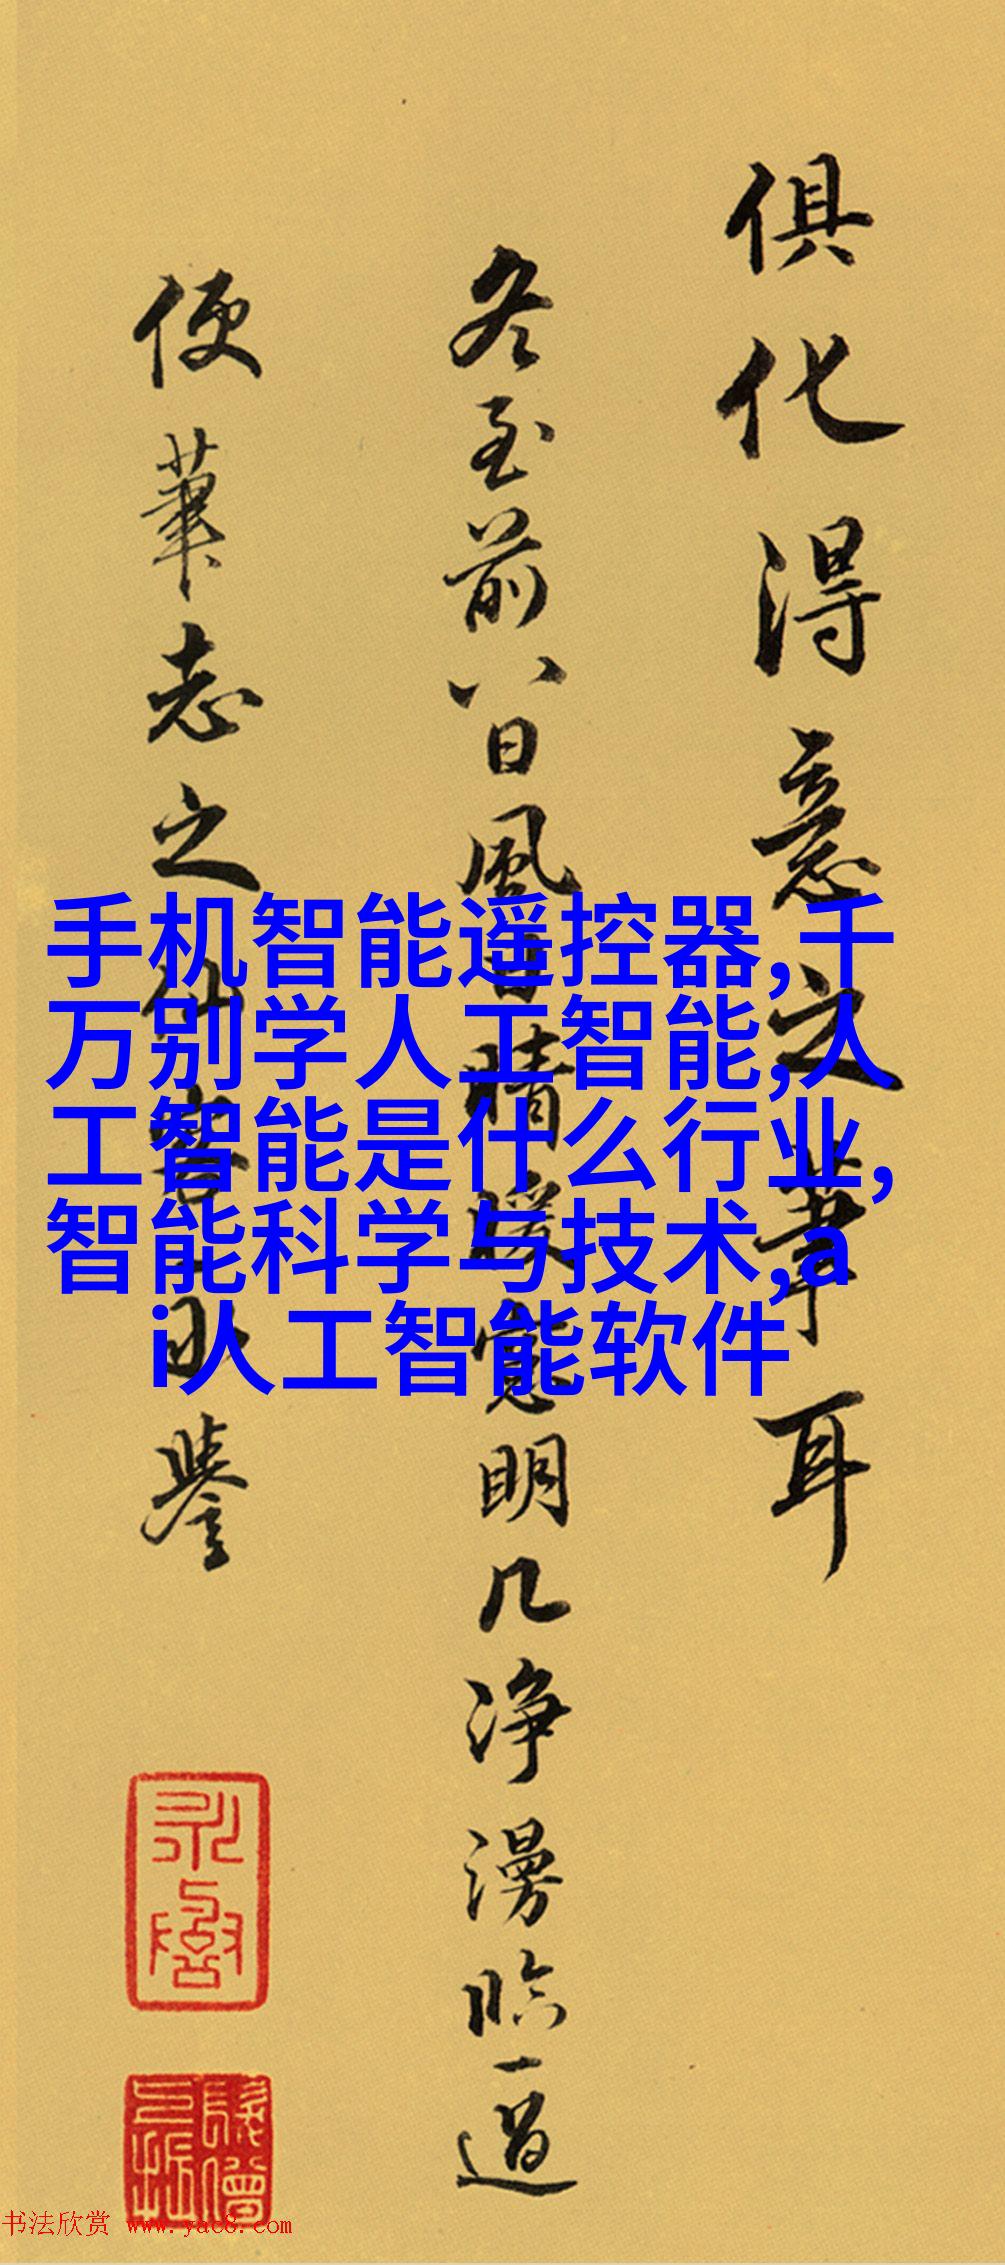 俱化得意之筆耳
冬至前八日風日晴暖窓明几净漫臨一過
便筆志之
譽
手机智能遥控器,千
万别学人工智能,人
工智能是什么行业,
智能科学与技术,a
i人工智能软件
书法欣赏 www.yac8.com